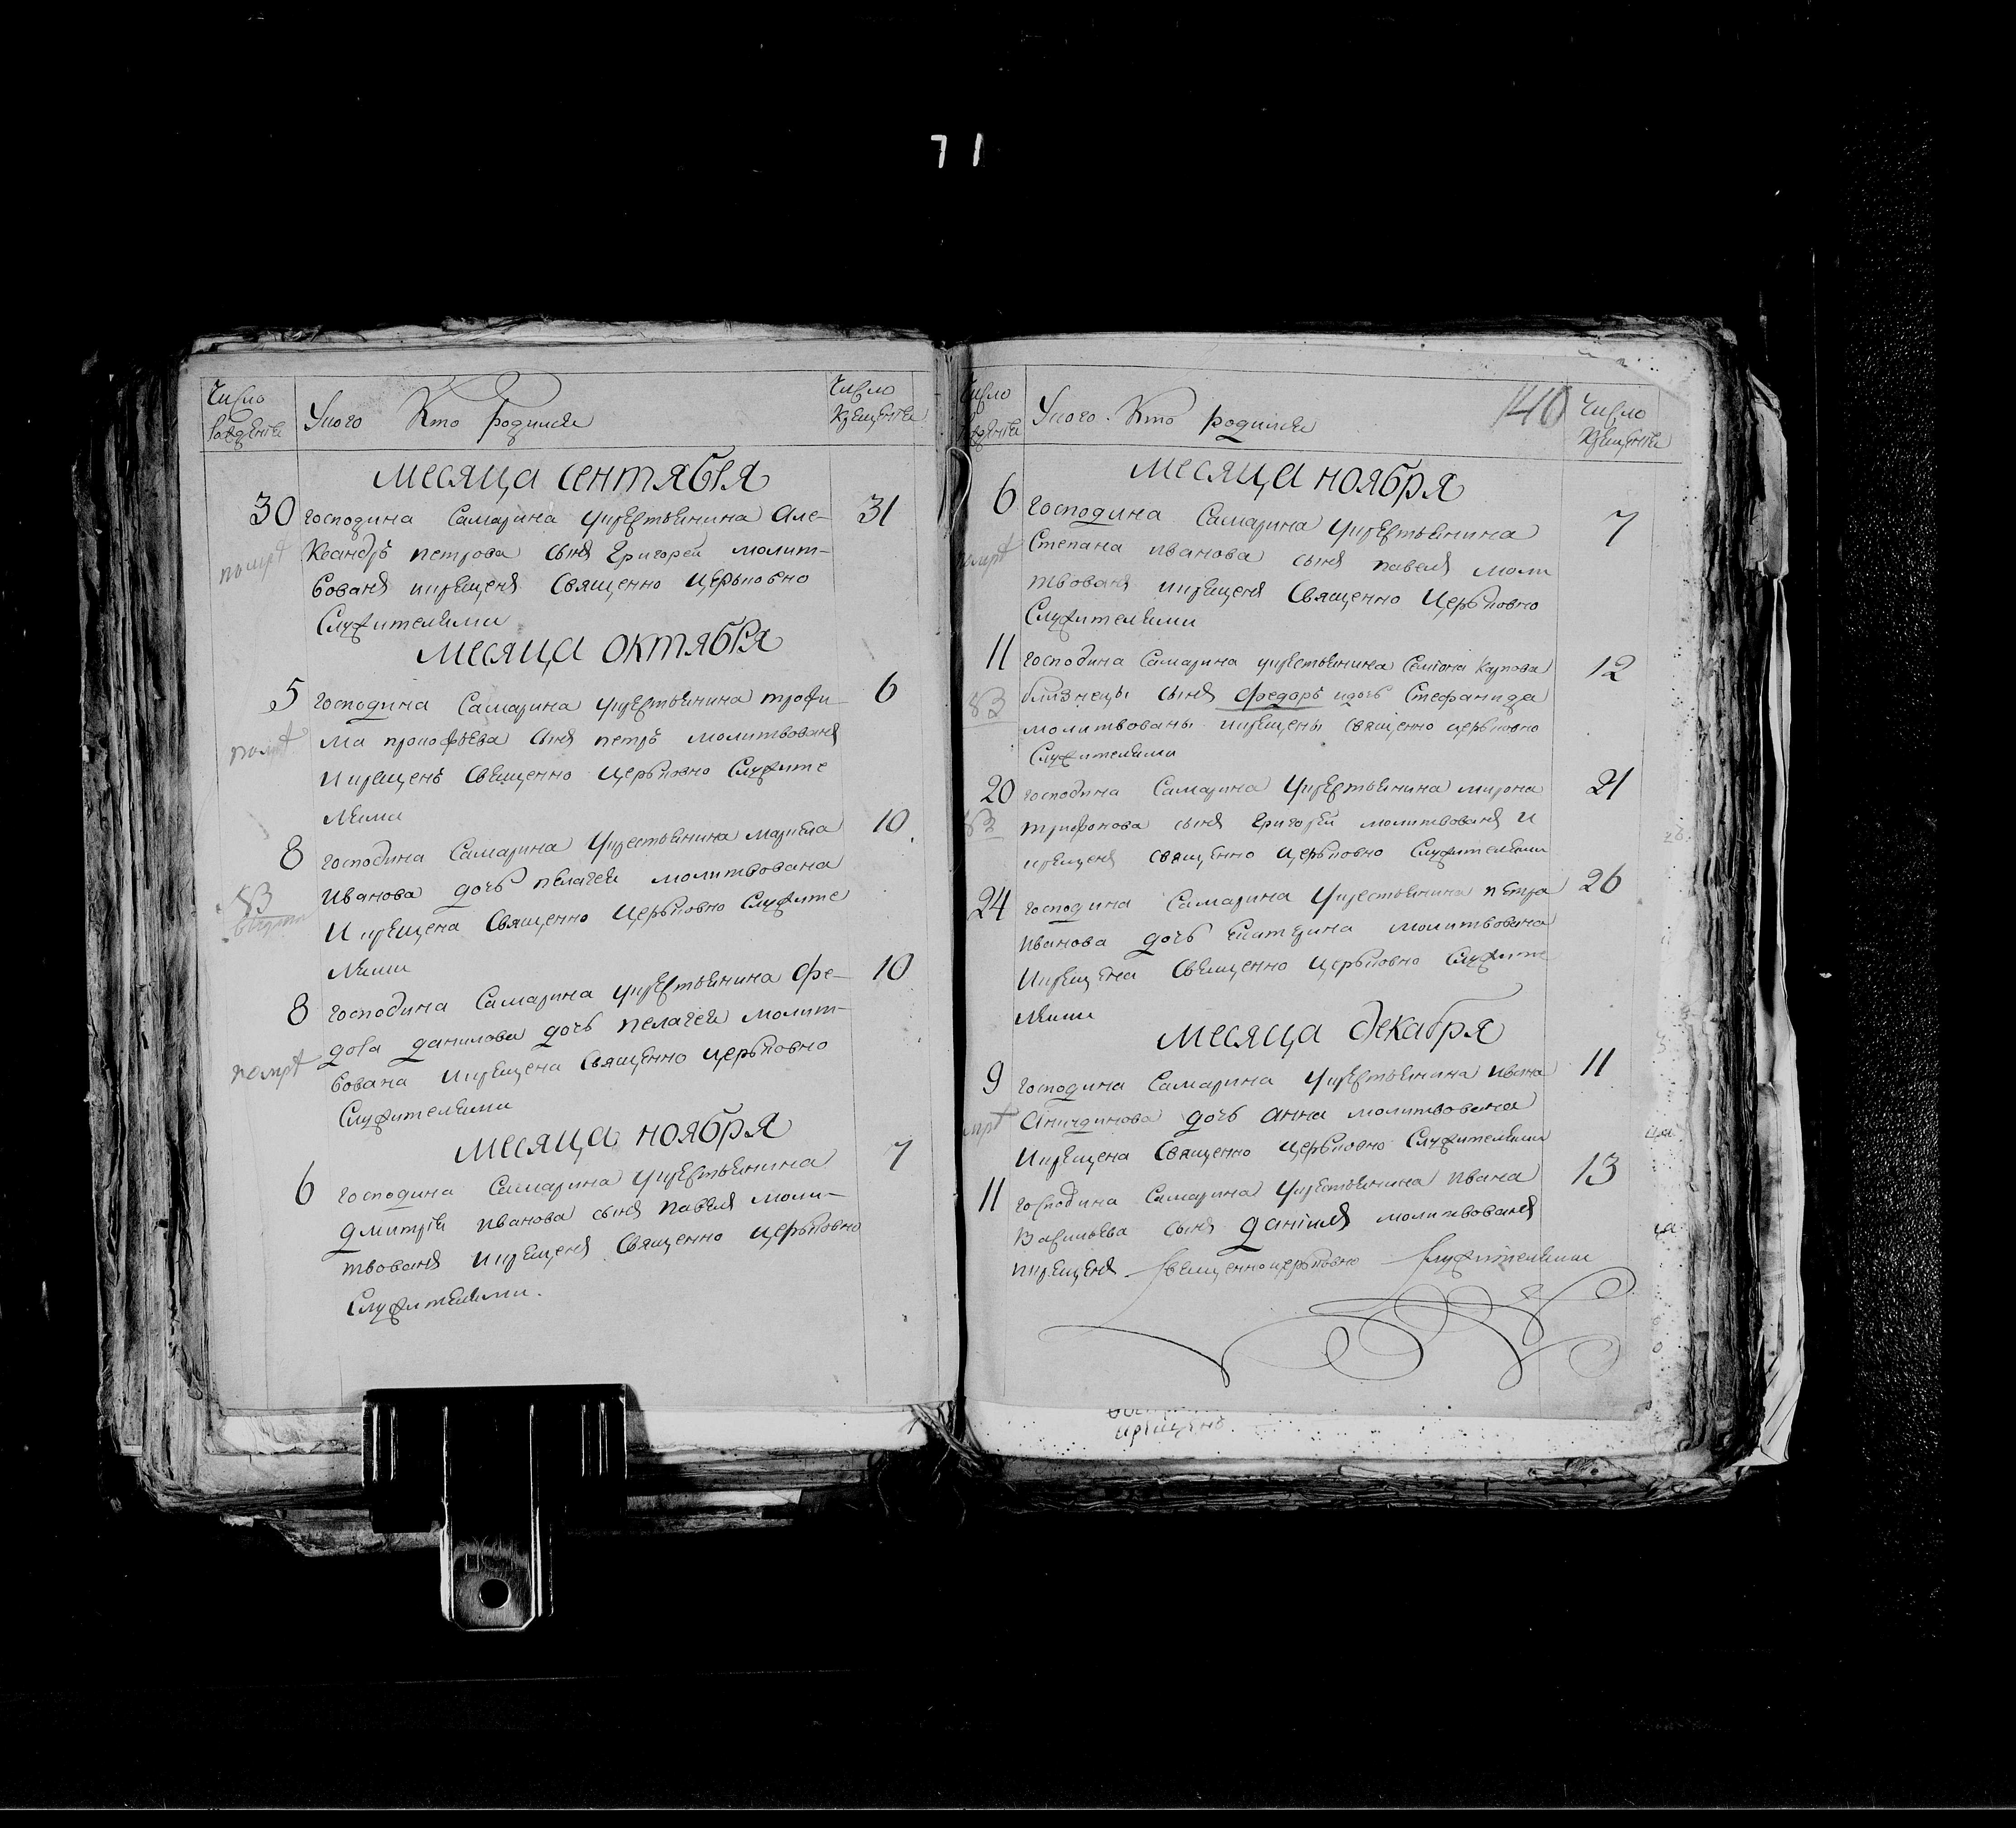 71
Число рождения
Уково Кто родился
Число крещения
месяца сентября
30 господина Самарина укрестьянина Але- 31
ксандръ петрова сынъ Григорей молит-
помре
вованъ икрещенъ Священно Церьковно
Служителями
месяца октября
5 господина Самарина укрестьянина трофи- 6
ма прокофьева сынъ петръ молитвованъ
помре
Икрещенъ Священно церьковно Служите
лями
8 господина Самарина Укрестьянина 10
Иванова дочь пелагея молитвована
83
И крещена Священно Церьковно Служите
лями
8 господина Самарина укрестьянина Фе- 10
дота данилова дочь пелагея молит-
помре
вована икрещена Священно церьковно
Служителями
месяца ноября
6 господина Самарина Укрестьянина 7
дмитрія иванова сынъ павелъ моли-
твованъ икрещенъ Священно церьковно
Служителями.
Число рождения
Уково Кто родился
140
Число крещения
месяца ноября
6 господина Самарина Укрестьянина 7
Степана иванова сынъ павелъ моли
помре
твованъ икрещенъ Священно Церьковно
Служителями
11 господина Самарина укрестьянина Семіона Карпова 12
близнецы сынъ федоръ идочь Стефанида
83
молитвованы икрещены священно церьковно
Служителями
20 господина Самарина Укрестьянина мирона 21
трифонова сынъ Григорей молитвованъ и
83
крещенъ священно церьковно Служителями
24 господина Самарина Укрестьянина петра 26
иванова дочь Екатерина молитвована
Икрещена Священно церьковно Служите
лями
месяца декабря
9 господина Самарина Укрестьянина ивана 11
дочь анна молитвована
Икрещена Священно церьковно Служителями
11 господина Самарина Укрестьянина ивана 13
Васильева сынъ даніилъ молитвованъ
икрещенъ Священноцерьковно Служителями
крещенъ.